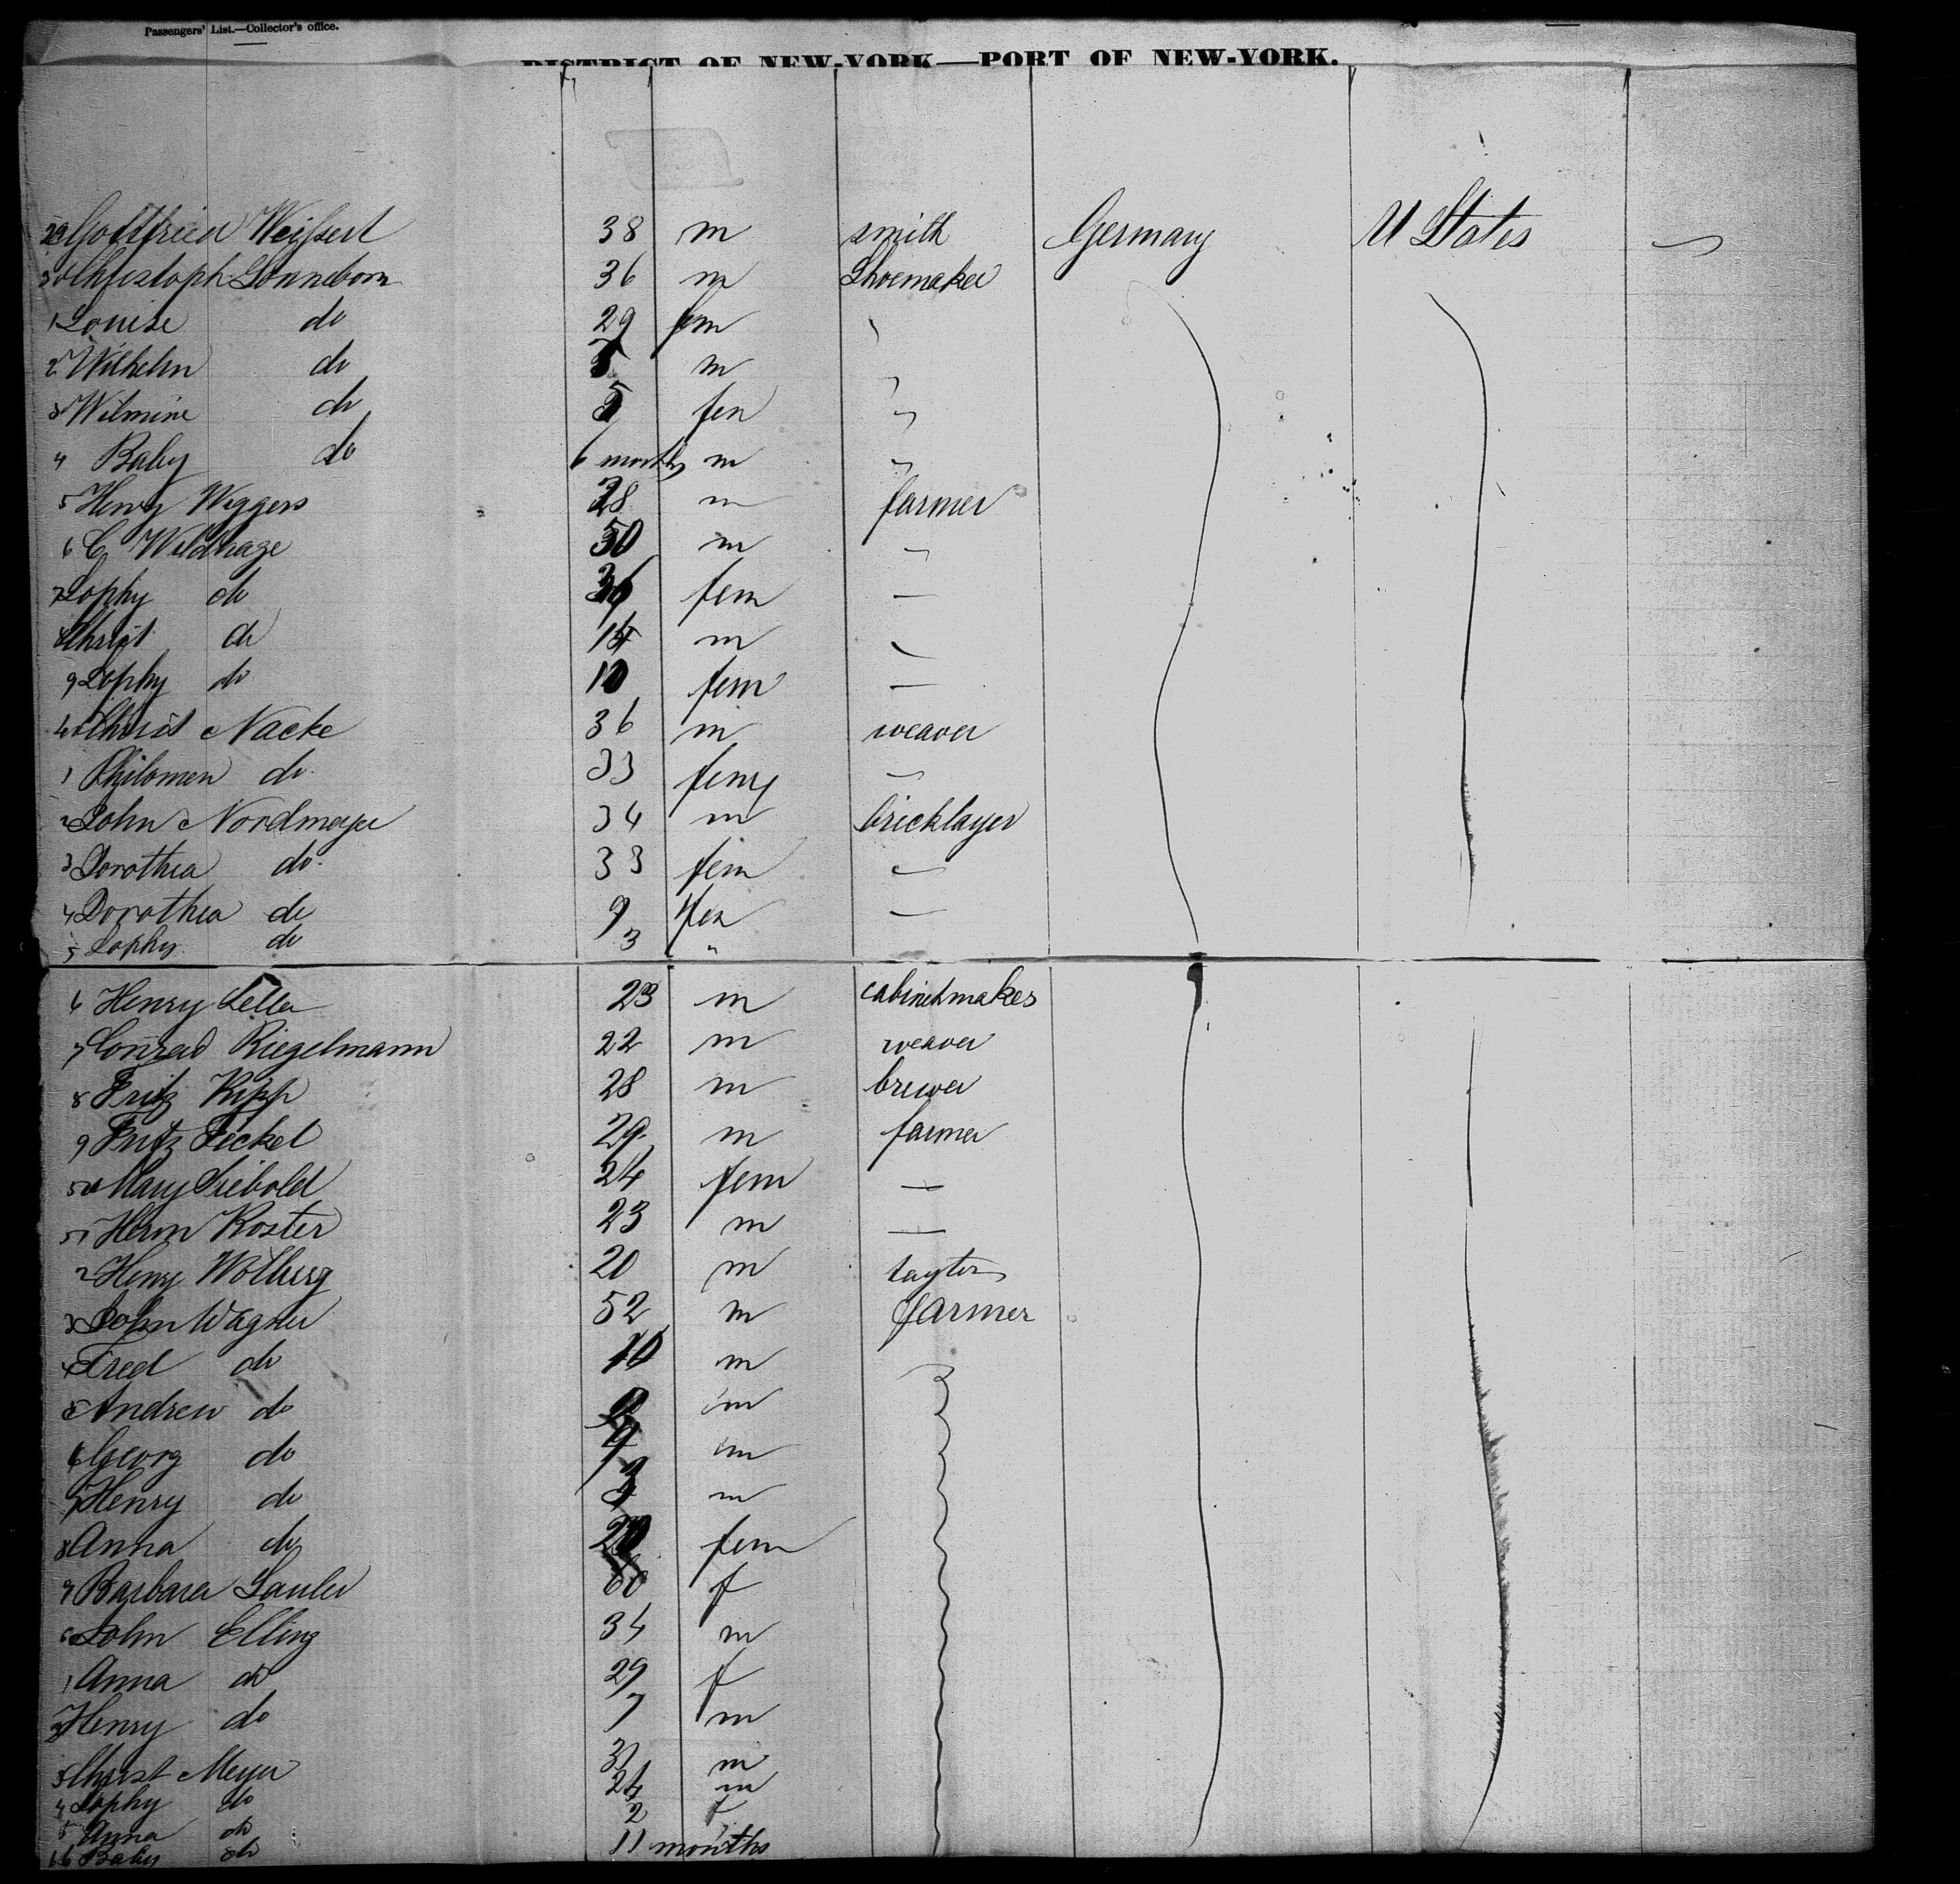 Passengers' List.—Collector's office.
DISTRICT OF NEW-YORK—PORT OF NEW-YORK.
29 Gottfried Weifsert 38 m smith Germany U States
30 Christoph Sonneborn 36 m Shoemaker
1 Louise do 29 fem "
2 Wilhelm do m
3 Wilmine do 5 fem "
4 Baby do 6 months m "
5 Henry Wiggers 28 m farmer
6 C Wildhage 50 m "
7 Sophy do fem —
8 Christ do 14 m
9 Sophy do 10 fem —
40 Christ Nacke 36 m weaver
1 Philomen do 33 fem —
2 John Nordmeyer 34 m bricklayer
3 Dorothea do 33 fem —
4 Dorothea do 9 fem —
5 Sophy do 3 "
6 Henry Seller 23 m cabinetmaker
7 Conrad Riegelmann 22 m weaver
8 Fritz Kipp 28 m brewer
9 Fritz Feckel 29 m farmer
50 Mary Siebold 24 fem —
51 Herm Koster 23 m —
2 Henry Wolberg 20 m taylor
3 John Wagner 52 m farmer
4 Fred do 10 m
5 Andrew do m
6 Georg do 9 m
7 Henry do 3 m
8 Anna do 20 fem
9 Barbara Sauler 60 f
60 John Elling 34 m
1 Anna do 29 f
2 Henry do 7 m
3 Christ Meyer 31 m
4 Sophy do 24 m
5 Anna do 2 f
66 Baby do 11 months